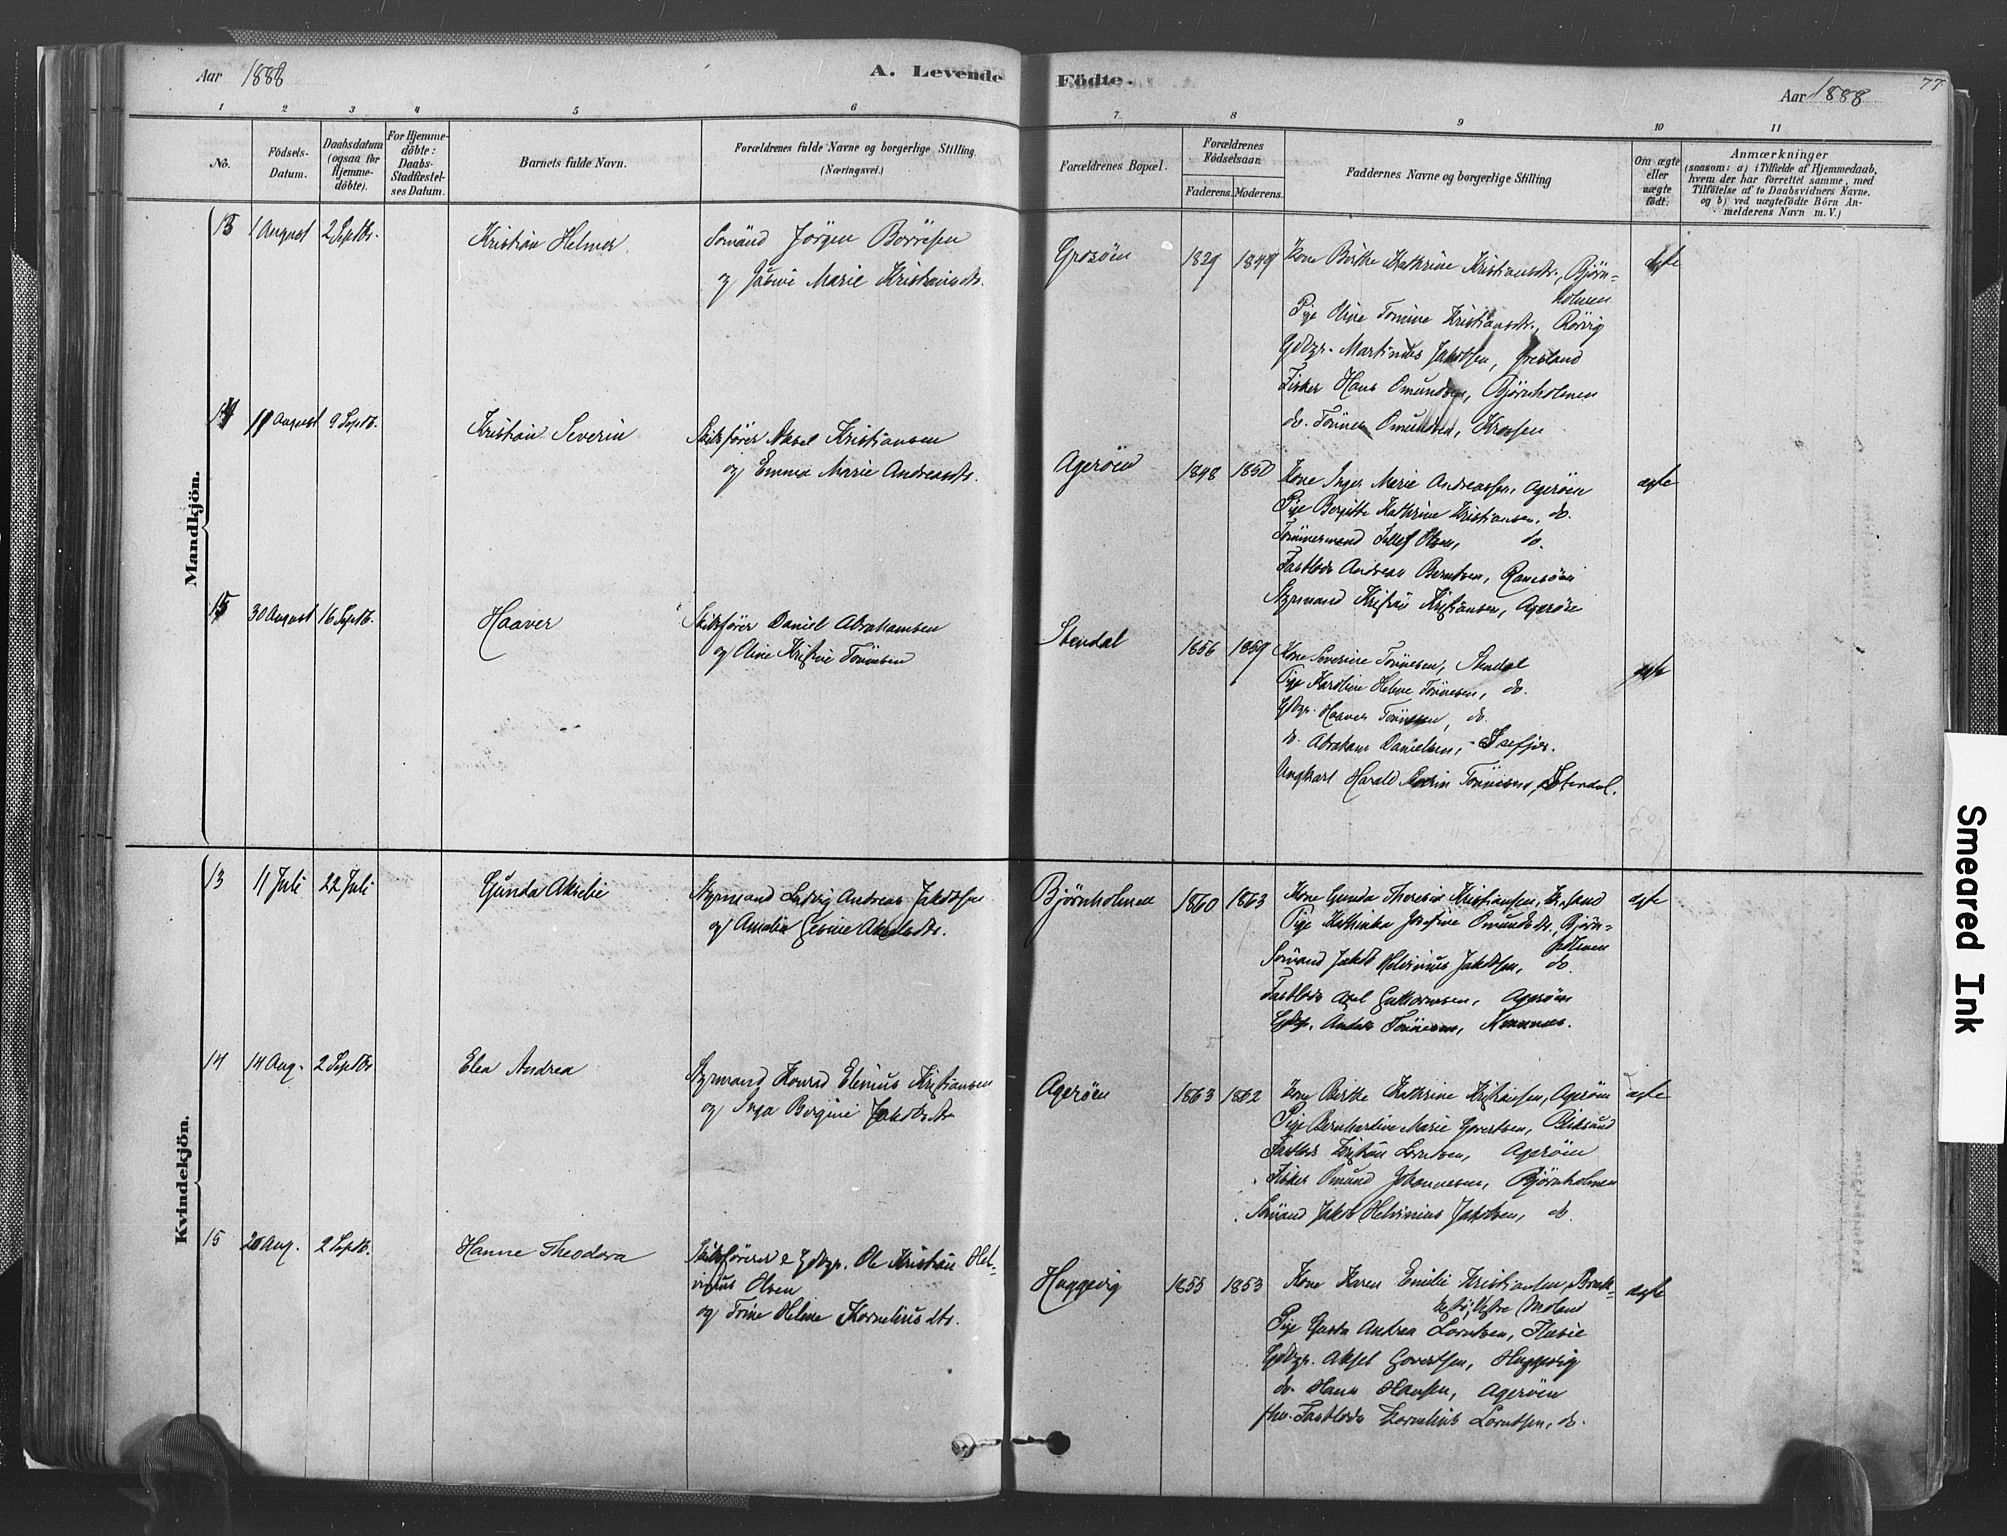 Aar 1888
A. Levende
Födte.
Aar 1888
77
1
2
3
4
5
6
7
8
9
10
11
No.
Födsels-
Datum.
Daabsdatum
(ogsaa for
Hjemme-
döbte).
For Hjemme-
döbte:
Daabs-
Stadfæstel-
ses Datum.
Barnets fulde Navn.
Forældrenes fulde Navne og borgerlige Stilling
(Næringsvei.)
Forældrenes Bopæl.
Forældrenes
Födselsaar.
Faderens.
Moderens.
Faddernes Navne og borgerlige Stilling
Om ægte
eller
uægte
födt.
Anmærkninger
(saasom: a) i Tilfælde af Hjemmedaab,
hvem der har forrettet samme, med
Tilföielse af to Daabsvidners Navne,
og b) ved uægtefödte Börn An-
melderens Navn m. V.)
Mandkjön.
13
1 August
2 Septbr.
Kristian Helmer
Sømand Jørgen Børresen
og Marie Kristiansdtr.
1829
1849
Kone Birthe Kathrine Kristiansdtr., Bjørn-
holmen
Pige Oline Tomine Kristiansdtr., Rørvig
Gdbgr. Martinius Jakobsen,
Fisker Hans Omundsen, Bjørnholmen
do. Tønnes Omundsen, Krossen
ægte
14
August
9 Septb.
Kristian Severin
Skibsfører Aksel Kristiansen
og Emma Marie Andreasdtr.
Agerøen
1848
1850
Kone Inger Marie Andreassen, Agerøen
Pige Bergitte Kathrine Kristiansen, do.
Tømmermand Olsen, do.
Fastlods Andreas Berntsen, Ramsøen
Styrmand Kristian Kristiansen, Agerøen
ægte
15
30 August
16 Septb.
Haaver
Skibsfører Daniel Abrahamsen
og Oline Kristine Tønnesen
Stendal
1856
1859
Kone Severine Tønnesen, Stendal
Pige Karoline Helene Tønnesen, do.
Gdbgr. Haaver Tønnesen, do.
do. Abraham Danielsen, Isefjær.
Ungkarl Harald Tønnesen, Stendal.
ægte
Kvindekjön.
13
11 Juli
22 Juli
Gunda Akselie
Styrmand Ludvig Andreas Jakobsen
og Amalie Gesine Akselsdtr.
Bjørnholmen
1860
1863
Kone Gunda Theresia Kristiansen,
Pige Kathinka Josefine Omundsdtr., Bjørn-
holmen
Sømand Jakob Helvinius Jakobsen, do.
Fastlods Axel Guttormsen, Agerøen
Gdbgr. Anders Tønnesen,
ægte
14
14 Aug.
2 Septbr
Elea Andrea
Styrmand Konrad Elenius Kristiansen
og Inga Bergine Jakobsdtr
Agerøen
1863
1862
Kone Birthe Kathrine Kristiansen, Agerøen
Pige Bernhardine Marie Govertsen,
Fastlods Kristian Berntsen, Agerøen
Fisker Omund Johannesen, Bjørnholmen
Sømand Jakob Helvinius Jakobsen, do.
ægte
15
20 Aug.
2 Septb.
Hanne Theodora
Skibsfører & Gdbgr. Ole Kristian Hel-
vinius Olsen
og Trine Helene Kornelius dtr.
Huggevig
1855
1853
Kone Karen Emilie Kristiansen,
Vestre Moland
Pige Andrea Lorntsen,
Gdbgr. Aksel Govertsen, Huggevig
do. Hans Hansen, Agerøen
Fastlods Kornelius Lorntsen, do.
ægte
Smeared Ink